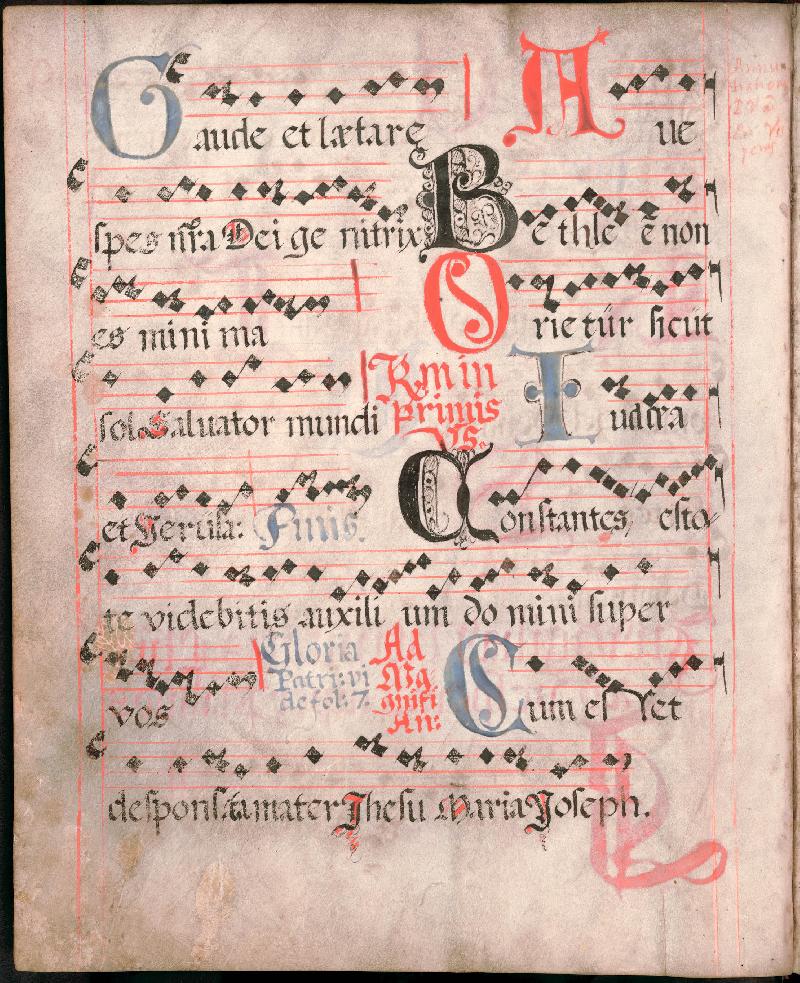 Gaude et lætare Aue
spes nr̃a Dei ge nitrix Bethle ẽ non
es mini ma Orietur sicut
sol Saluator mundi Rm in primis Vs. Iudæa
et Jerusa: Finis. Constantes esto
te videbitis auxili um do mini super
vos Gloria Patri: vi de fol: 7. Ad Mag gnifi An: Cum es set
desponsata mater Jhesu Maria Joseph.